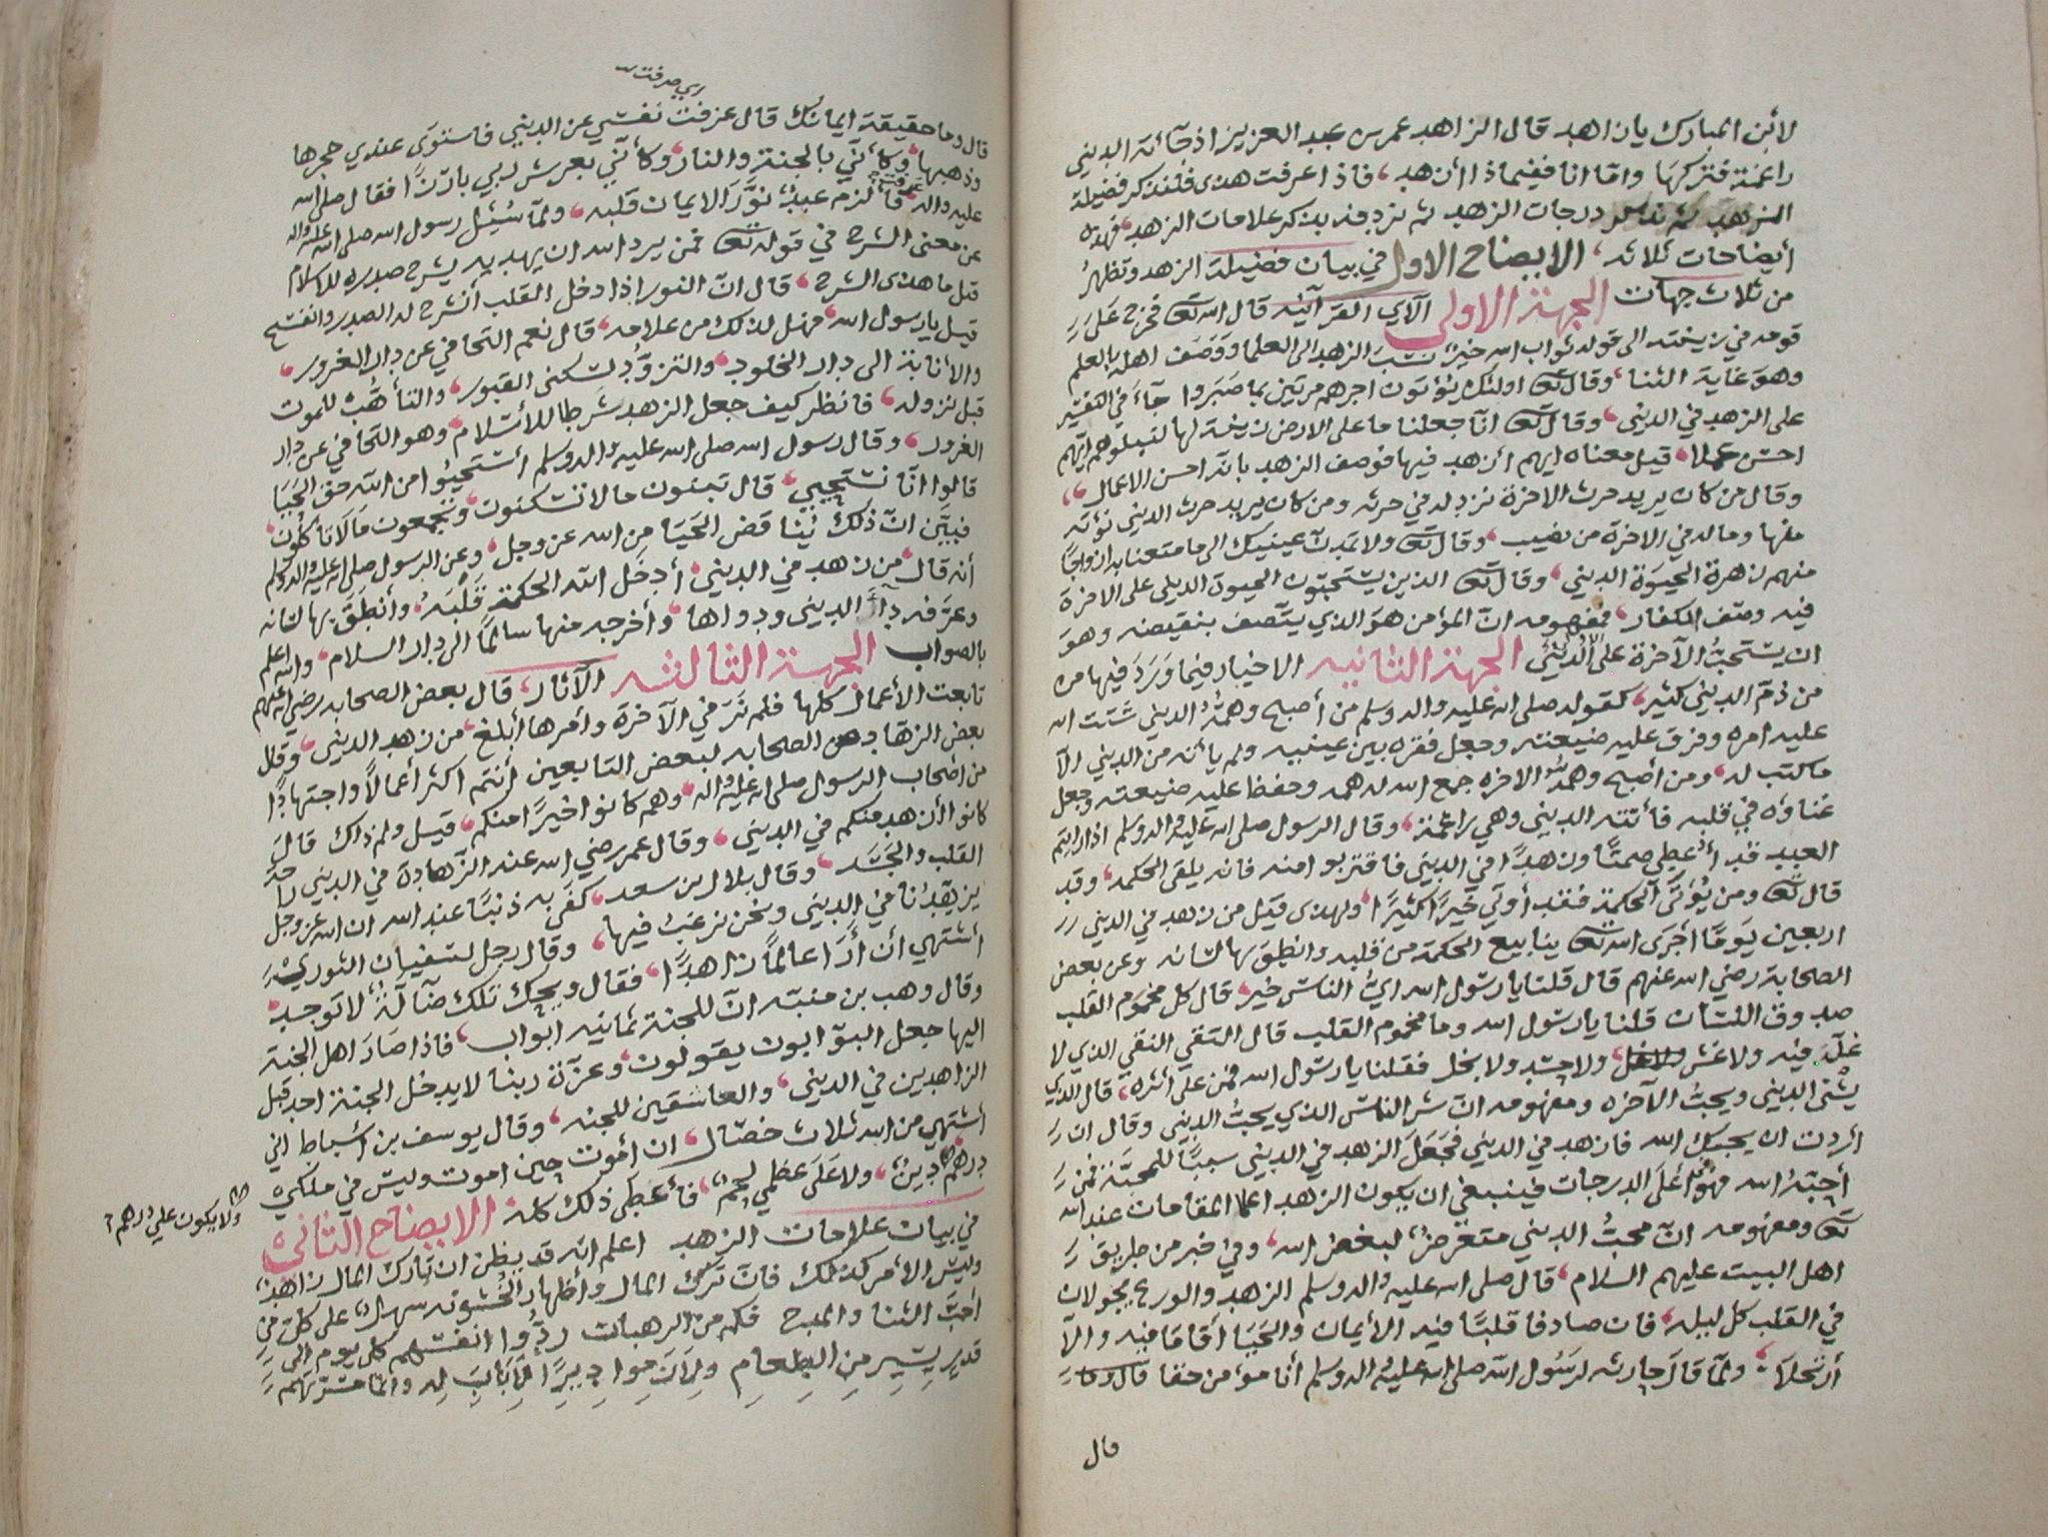 لابن المبارك يا زاهد قال الزاهد عمر بن عبد العزيز اذ جآئته الديني
راغمة فتركها وامّا انا ففيماذا ازهد، فاذا عرفت هذى فلنذكر فضيلة
الزهد ثم نذكر درجات الزهد ثم نردفه بذكر علامات الزهد، فهذه
أيضاحات ثلاثه، الايضاح الاول في بيان فضيلة الزهد وتظهرُ
من ثلاث جهات الجهة الاولى الآي القرآنيه قال الله تعَ فخرج على
قومه في زينته الى قوله ثواب الله خيرٌ نسَبَ الزهد الى العلما ووَصَف اهله بالعلم
وهوَ غاية الثنا، وقال تعَ اولئك يؤتون اجرهم مرتين بما صَبَروا جآءَ في التفسير
على الزهد في الديني، وقال تعَ انّا جعلنا ما على الارض زينة لها لنبلوهم ايّهم
احسَن عملا، قيل معناه ايهم أزهد فيها فوصف الزهد بانّه احسن الاعمال،
وقال من كان يريد حرث الاخرة نزد له في حرثه ومن كان يريد حرث الديني نؤته
منها وماله في الاخرة من نصيب، وقال تعَ ولا تمدنّ عينيك الى ما متعنا به ازواجًا
منهم زهرة الحيوَة الديني، وقال تعَ الذين يستحبّون الحيوة الديني على الاخرة
فيه وصف الكفار، فمفهومه انّ المؤمن هوَ الذي يتّصف بنقيضه وهوَ
ان يستحبُّ الآخرة على الدُّنيي الجهة الثانيه الاخبار فيما وَرَدَ فيها مره
من ذمّ الديني كثير، كقوله صلى الله عليه واله وسلم من أصبح وهمّهُ الديني شتت الله
عليه امره وفرق عليه ضيعته وجعل فقره بين عينيه ولم يأته من الديني الّا
ما كتب له، ومن أصبح وهمّهُ الاخره جمع الله له همه وحفظ عليه ضيعته وجعل
غناؤه في قلبه فأتته الديني وهي راغمة، وقال الرسول صلى الله عليه واله وسلم اذا رايتم
العبد قد أُعطي صمتًا وزهدًا في الديني فاقتربوا منه فانه يلقى الحكمه، وقد
قال تعَ ومن يُؤتَى الحكمة فقد أوتي خيرًا كثيرًا، ولهذى قيل من زهد في الديني
اربعين يَومًا أجرَى الله تعَ ينابيع الحكمة من قلبه وانطق بها لسَانه وعن بعض
الصحابة رضي الله عنهم قال قلنا يا رسَول الله ايُّ الناسَ خير، قال كل مخموم القلب
صدوق اللسَان قلنا يا رسَول الله وما مخموم القلب قال التقي النقي الذي لا
غلّ فيه ولا غش ولا حسَد ولا بخل فقلنا يا رسَول الله فمن على اثره، قال الذي
يشنى الديني ويحبُّ الآخره ومفهومه انّ شر الناسَ الذي يحبُّ الديني وقال ان
أردت ان يحبك الله فازهد في الديني فجَعَلَ الزهد في الديني سببًا للمحبّة فمن
أحبّهُ الله فهوَ أعلَى الدرجات فينبغي ان يكون الزهد اعلا المقامات عند الله
تعَ ومفهومه انّ محبُّ الديني متعرضٌ لبغض الله، وفي خبر من طريق
اهل البيت عليهم السَلام، قال صلى الله عليه واله وسلم الزهد والورع يجولان
في القلب كل ليله، فان صادفا قلبًا فيه الأيمان والحَيَا أقاما فيه والّا
أرتحلا، ولمّا قال حارثه لرَسُول الله صلى الله عليه واله وسلم أنا مؤمن حقا قال وما
قال
ربي صرفت
قال وما حقيقة ايمانك قال عزفت نفسَي عن الديني فاستوَى عندي حجرها
وذهبها، وكأنّي بالجنة والنار، وكأنّي بعرش ربي بارزًا فقال صلى الله
عليه واله عرفت فالزم عبدٌ نوَّرَ الايمان قلبه، ولمّا سُئِل رسول الله صلى الله عليه واله
عن معنى الشرح في قوله تعَ فمن يرد الله ان يهديه يشرح صدره للاسلام
قيل ما هذى الشرح، قال انّ النور اذا دخل القلب أنشرح له الصدر وانفسَح
قيل يا رسول الله، فهل لذلك من علامه، قال نعم التجافي عن دار الغرور،
والأنابة الى دار الخلود، والتزوّد لسَكنى القبور، والتأهّب للموت
قبل نزوله، فانظر كيف جعل الزهد شرطا للأسَلام، وهو التجافي عن دار
الغرور، وقال رسول الله صلى الله عليه واله وسلم أستَحيُوا من الله حق الحَيَا
قالوا انّا نستَحيي، قال تبنون ما لا تسَكنون، وتجمعون مَا لَا تأكلون،
فبيّن انّ ذلك يُناقض الحَيَا من الله عز وجل، وعن الرسول صلى الله عليه واله وسلم
أنه قال من زهد في الديني، أدخَل الله الحكمة قَلبَهُ، وأنطَقَ بها لسَانه
وعرّفه دآءَ الديني ودواها، وأخرجه منها سالمًا الى دار السَلام، والله اعلم
بالصواب الجهة الثالثه الآثار، قال بعض الصحابه رضي الله عنهم
تابعت الأعمال كلها فلم نَرَ في الآخرة وأمرها أبلغ، من زهد الديني، وقال
بعض الزهاد من الصحابه لبعض التابعين أنتم اكثر أعمالًا واجتهادًا
من أصحاب الرسول صلى الله عليه واله، وهم كانوا خيرًا منكم، قيل ولم ذاك قال
كانوا أزهد منكم في الديني، وقال عمر رضي الله عنه الزّهادة في الديني راحة
القلب والجَسَد، وقال بلال بن سعد، كفَى به ذنبًا عند الله ان الله عز وجل
يزهّدُنا في الديني ونحن نرغبُ فيها، وقال رجل لسَفيان الثوري
أشتهي أن أرَا عالمًا زاهدًا، فقال ويحك تلك ضآلّةٌ لا توجد،
وقال وهب بن منبّه انّ للجنة ثمانيه ابواب، فاذا صَارَ اهل الجنة
اليها جعل البوّابون يقولون، وعزّة ربنا لا يدخل الجنة احد قبل
الزاهدين في الديني، والعاشقين للجنه، وقال يوسف بن اسَباط اني
أشتهي من الله ثلاث خصَال، ان أموت حين اموت وليسَ في ملكي
درهم دينٌ، ولا عَلَى عظمي لحمٌ، فأعطى ذلك كله الايضاح الثاني
ولا يكون علي درهم
في بيان علامات الزهد اعلم انّه قد يظن ان تارك المال زاهدٌ،
وليسَ الأمر كذلك فانّ تركَ المال وأظهار الخُشونه سهلٌ، على كل من
أحبّ الثنا والمدح فكم من الرهبان ردُّوا انفسَهم كل يوم الى
قدر يسَيرٍ مِن الطعامِ ولَازموا ديرًا لا بَابَ له وانّما مسَرّتهم